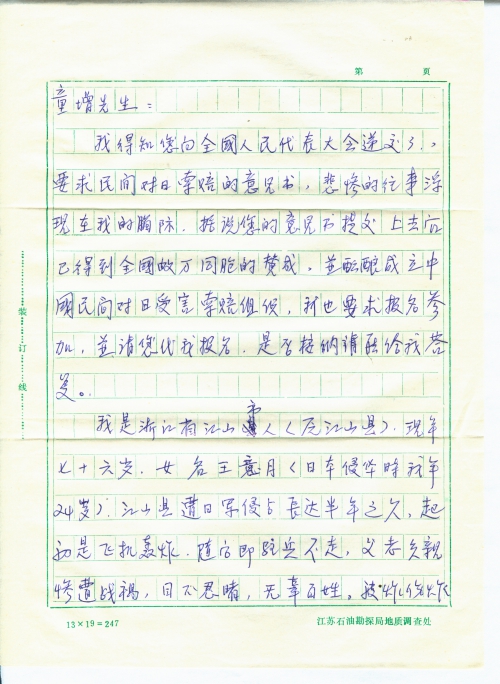 第 页
童增先生：
我得知您向全國人民代表大会递交了，
要求民间对日索赔的意见书，悲惨的往事浮
现在我的脑际。据说您的意见书提交上去后
已得到全國数万同胞的赞成，並酝酿成立中
國民间对日受害索赔组织，我也要求报名参
加，並请您代我报名。是否接纳请函给我答
复。
我是浙江省江山市人（原江山县）．现年
七十六岁．女 名王意月（日本侵华时我年
24岁）．江山县遭日军侵占长达半年之久，起
初是飞机轰炸．随后即驻兵不走，父老乡親
惨遭战祸，目不忍睹，无辜百姓，被炸伤炸
装订线
13×19=247
江苏石油勘探局地质调查处